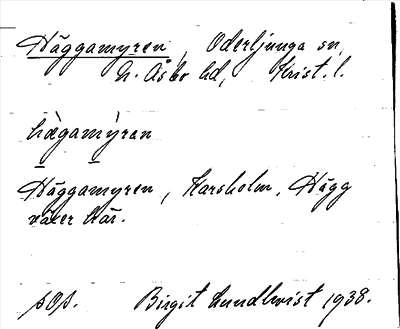 Häggamyren, Oderljunga sn,
N. Åsbo hd, Krist. l.
hägamýran
Häggamyren, Karsholm. Hägg
växer här.
Birgit Lundkvist 1938.